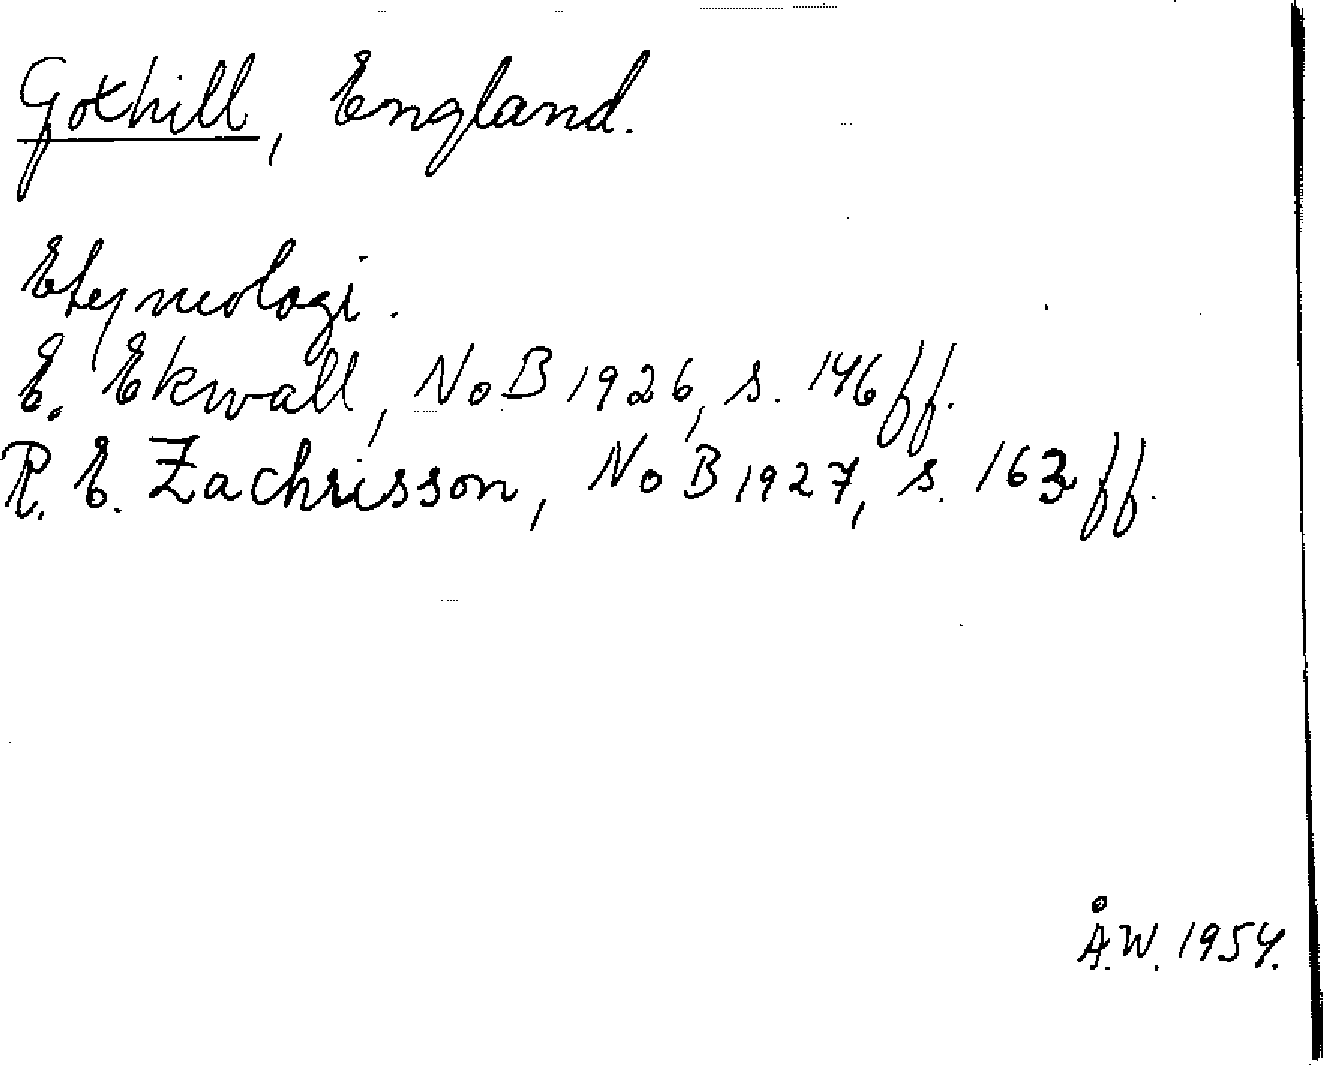 Gothill, England.
Etymologi.
E. Ekwall, NoB 1926, s. 146 ff.
R. E. Zachrisson, NoB 1927, s. 163 ff.
Å.W. 1954.